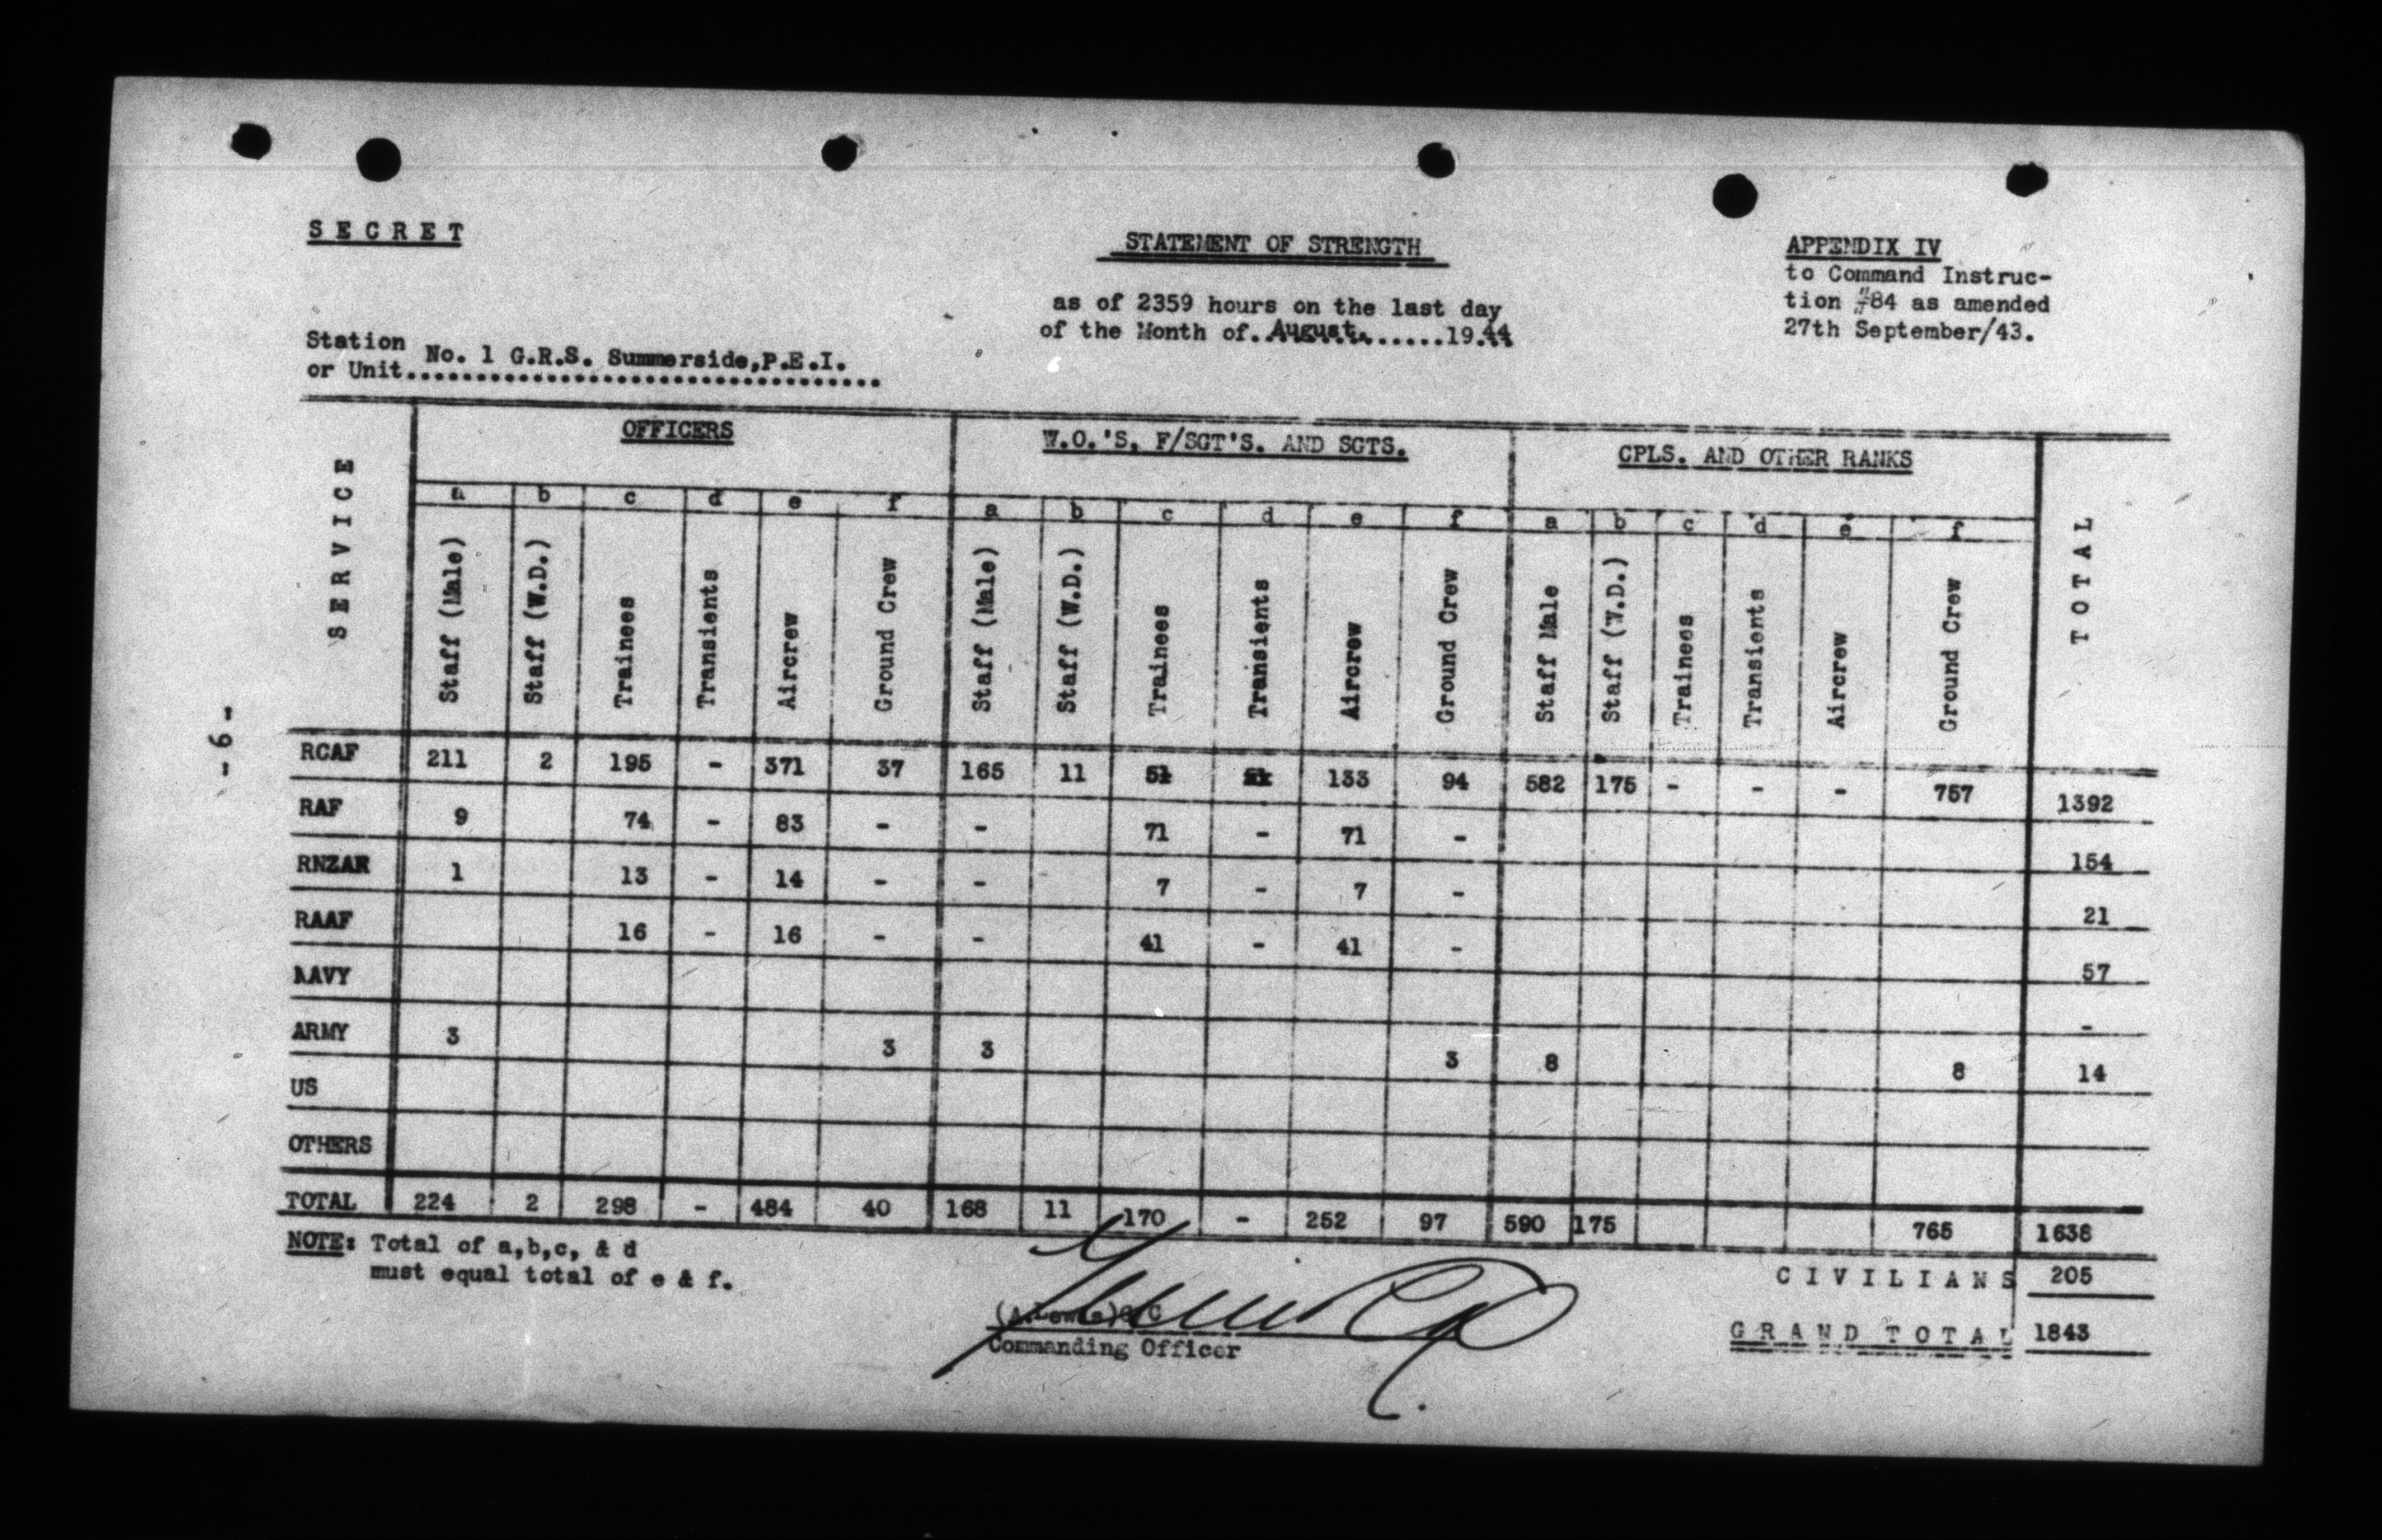 SECRET
STATEMENT OF STRENGTH
as of 2359 hours on the last day
of the Month of..August.........1944
APPENDIX IV
to Command Instruc-
tion #84 as amended
27th September/43.
Station
or Unit No. 1 G.R.S. Summerside,P.E.I.
SERVICE OFFICERS W.O.'S, F/SGT'S. AND SGTS. CPLS. AND OTHER RANKS TOTAL
a b c d e f a b c d e f a b c d e f
Staff (Male) Staff (W.D.) Trainees Transients Aircrew Ground Crew Staff (Male) Staff (W.D.) Trainees Transients Aircrew Ground Crew Staff Male Staff (W.D.) Trainees Transients Aircrew Ground Crew
RCAF 211 2 195 - 371 37 165 11 51 133 94 582 175 - - - 757 1392
RAF 9 74 - 83 - - 71 - 71 - 154
RNZAR 1 13 - 14 - - 7 - 7 - 21
RAAF 16 - 16 - - 41 - 41 - 57
NAVY -
ARMY 3 3 3 3 8 8 14
US
OTHERS
TOTAL 224 2 298 - 484 40 168 11 170 - 252 97 590 175 765 1638
NOTE: Total of a,b,c, & d
must equal total of e & f.
CIVILIANS 205
GRAND TOTAL 1843
(A.Lewis)G/C
Commanding Officer
-6-